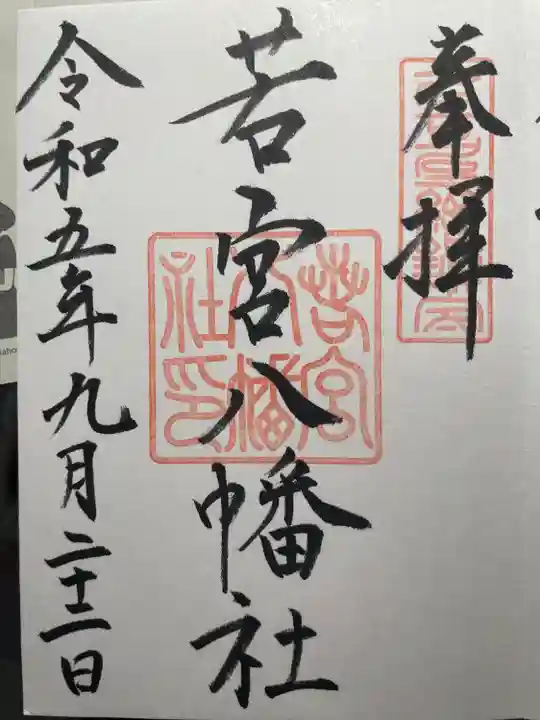 奉拝
若宮八幡社
若宮八幡社印
令和五年九月二十二日